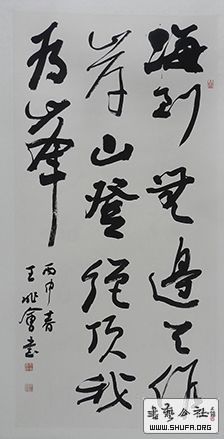 海到无边天作
岸山登绝顶我
为峰
丙申春
王 会书
书艺公社
WWW.SHUFA.ORG